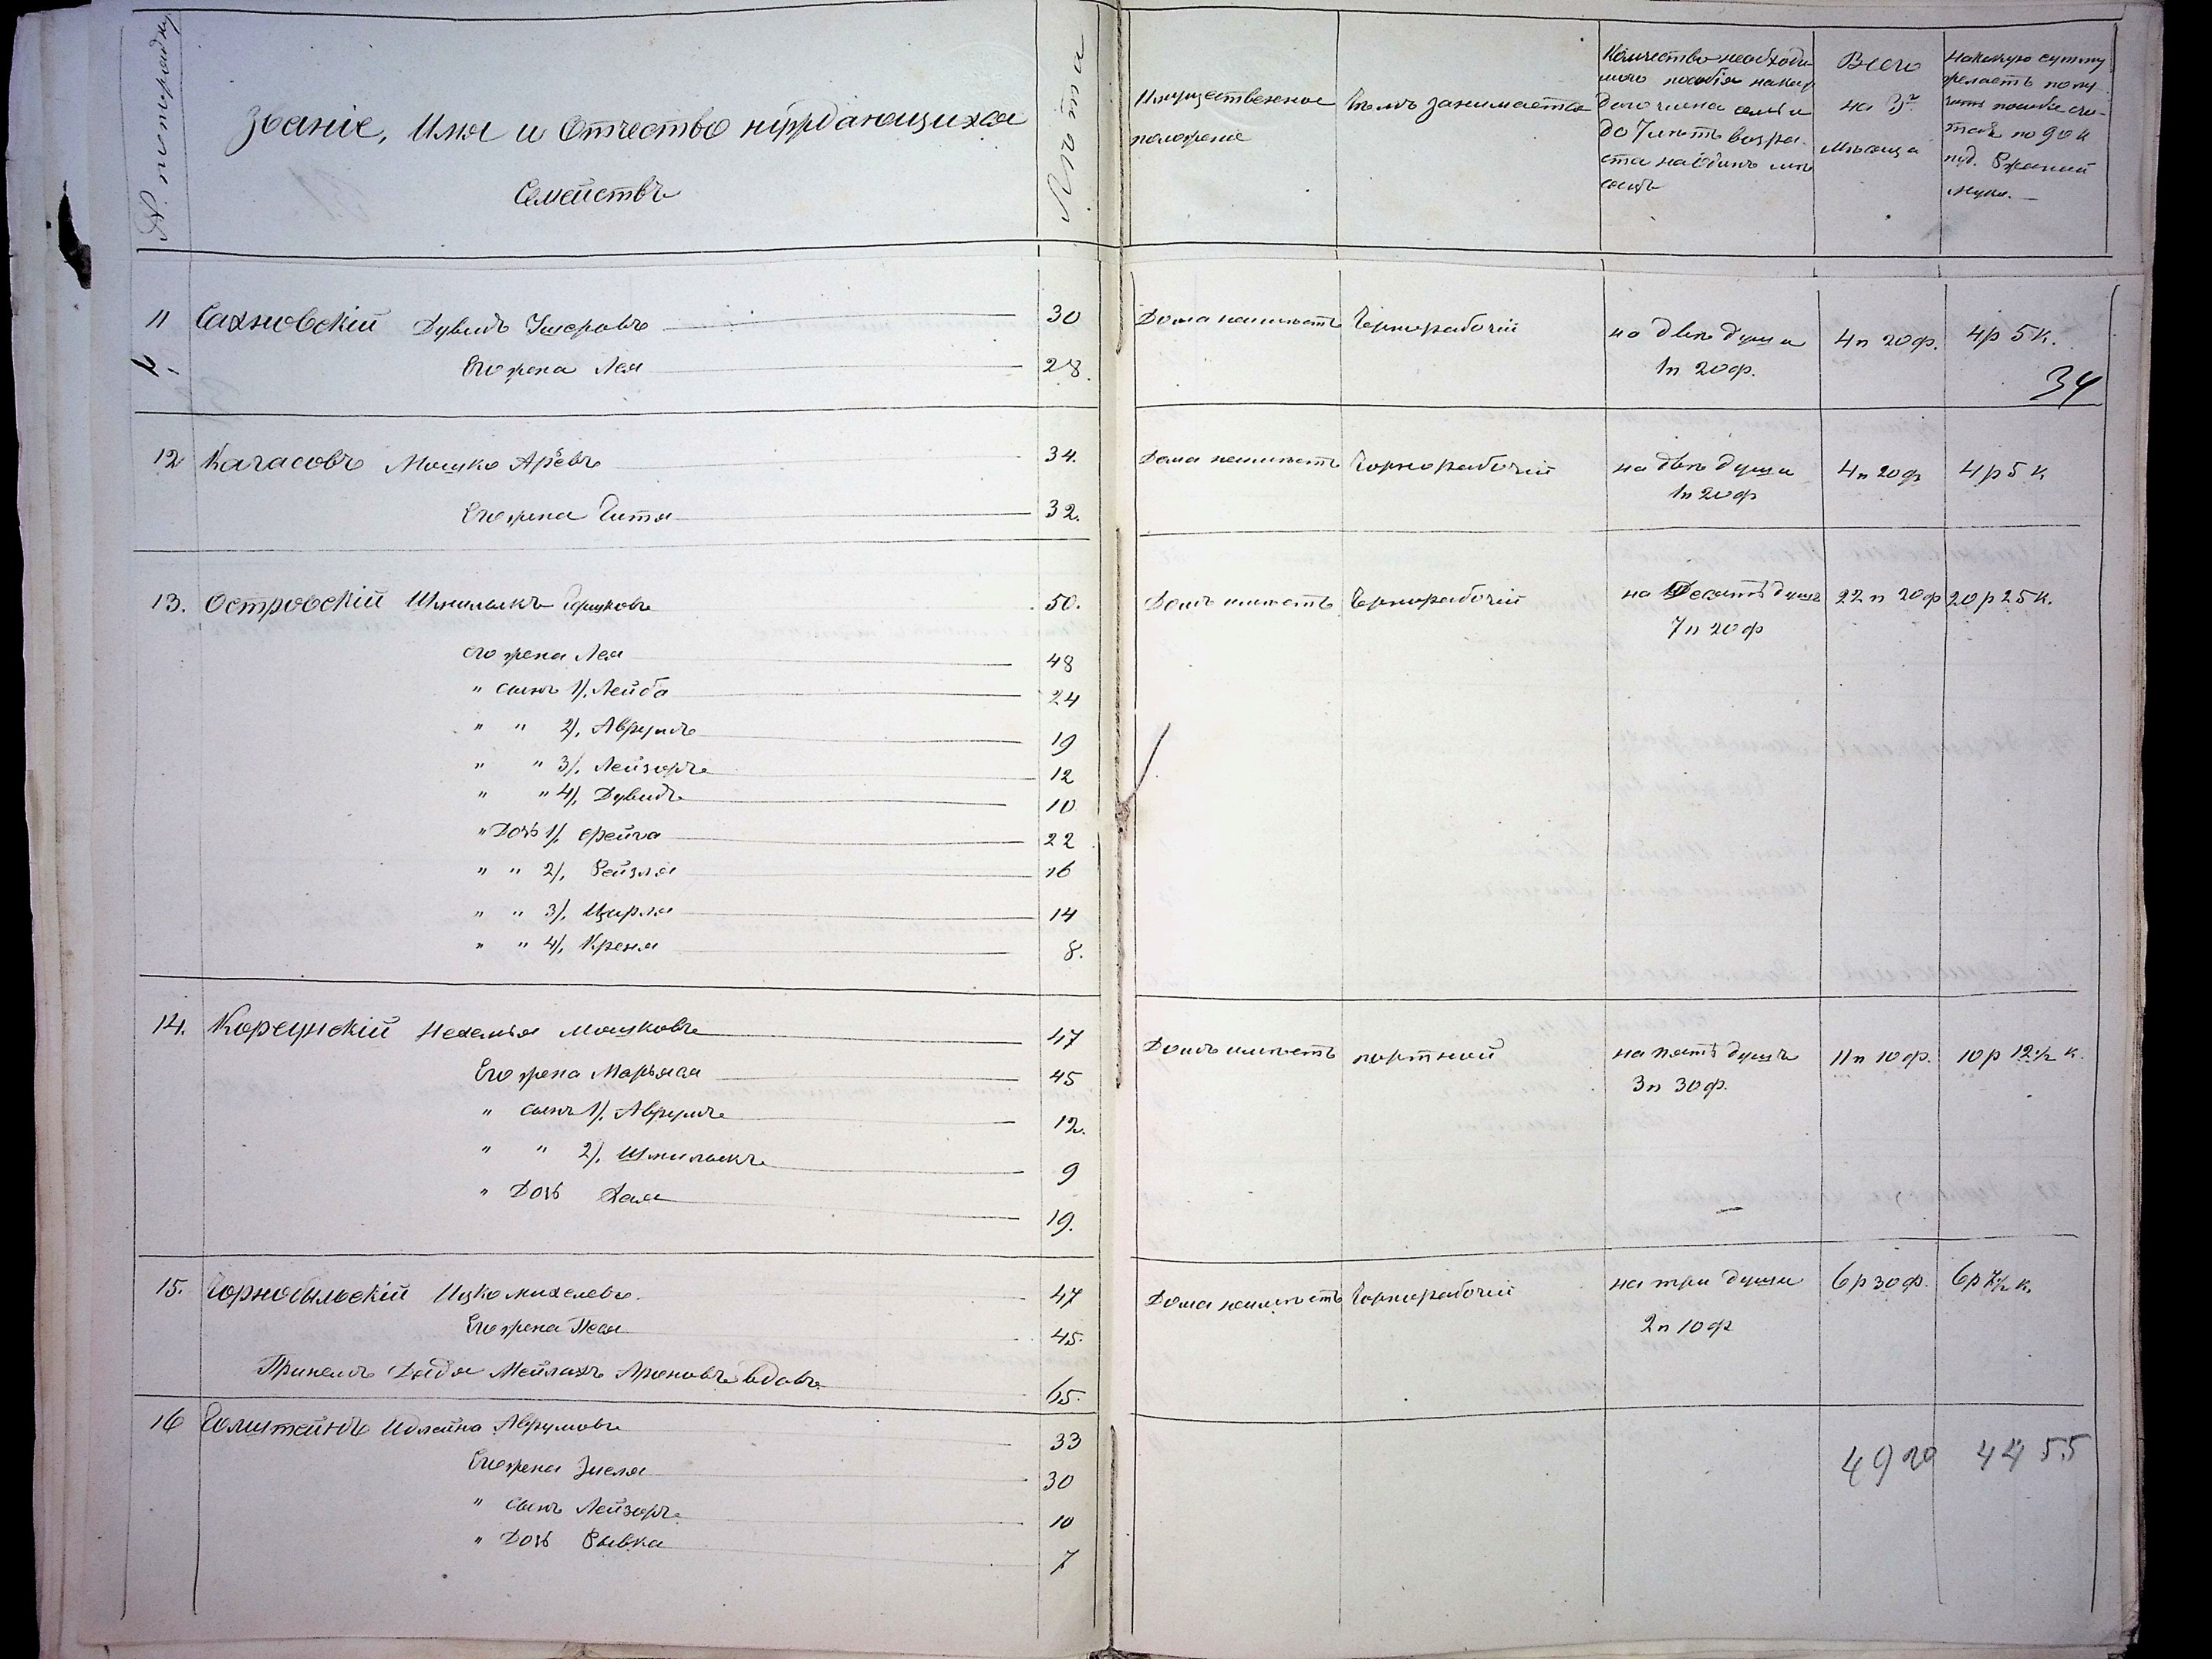 № по порядку
Званіе, Имя и Отчество нуждающихся
Семействъ
Лѣта
Имущественное
положеніе
Чемъ занимается
Количество необходи-
маго пособія на каж
даго члена семьи
до 7 лѣтъ возра-
ста на одинъ мѣ
сяцъ
Всего
на 3
мѣсяца
На какую сумму
желаетъ полу
чить пособіе счи-
тая по 90 к
пуд. Ржаной
муки.
11 Сахновскій Дувидъ Ушеровъ 30 Дома неимѣетъ Чернорабочій на двѣ души 4 п 20 ф. 4 р 5 к.
Его жена Лея 28. 1 п 20 ф.
34
12 Качасовъ Мошко Арёвъ 34. Дома неимѣетъ Чорнорабочій на двѣ души 4 п 20 ф 4 р 5 к
Его жена Гитя 32. 1 п 20 ф
13. Островскій Шмилыкъ Гершковъ 50. Домъ имѣетъ Чернорабочій на Десять душъ 22 п 20 ф 20 р 25 к.
7 п 20 ф
его жена Лея 48
" сынъ 1/, Лейба 24
" " 2/, Аврумъ 19
" " 3/, Лейзоръ 12
" " 4/, Дувидъ 10
" Дочь 1/, Фейга 22
" " 2/, Рейзля 16
" " 3/, Цирля 14
" " 4/, Креня 8.
14. Корсунскій Нехемья Мошковъ 47 Домъ имѣетъ портной на пять душъ 11 п 10 ф. 10 р 12 1/2 к.
Его жена Марьяся 45 3 п 30 ф.
" сынъ 1/, Аврумъ 12.
" " 2/, Шмилыкъ 9
" Дочь Хая 19.
15. Чорнобыльскій Ицко михелевъ 47 Дома неимѣетъ Чорнорабочій на три души 6 р 30 ф. 6 р 7 1/2 к.
Его жена Песя 45. 2 п 10 ф
Дядя Мейлахъ Ароновъ вдовъ 65.
16 Голштейнъ Аврумовъ 33
Его жена Энеля 30 49 20 44 55
" сынъ Лейзоръ 10
" Дочь Рывка 7